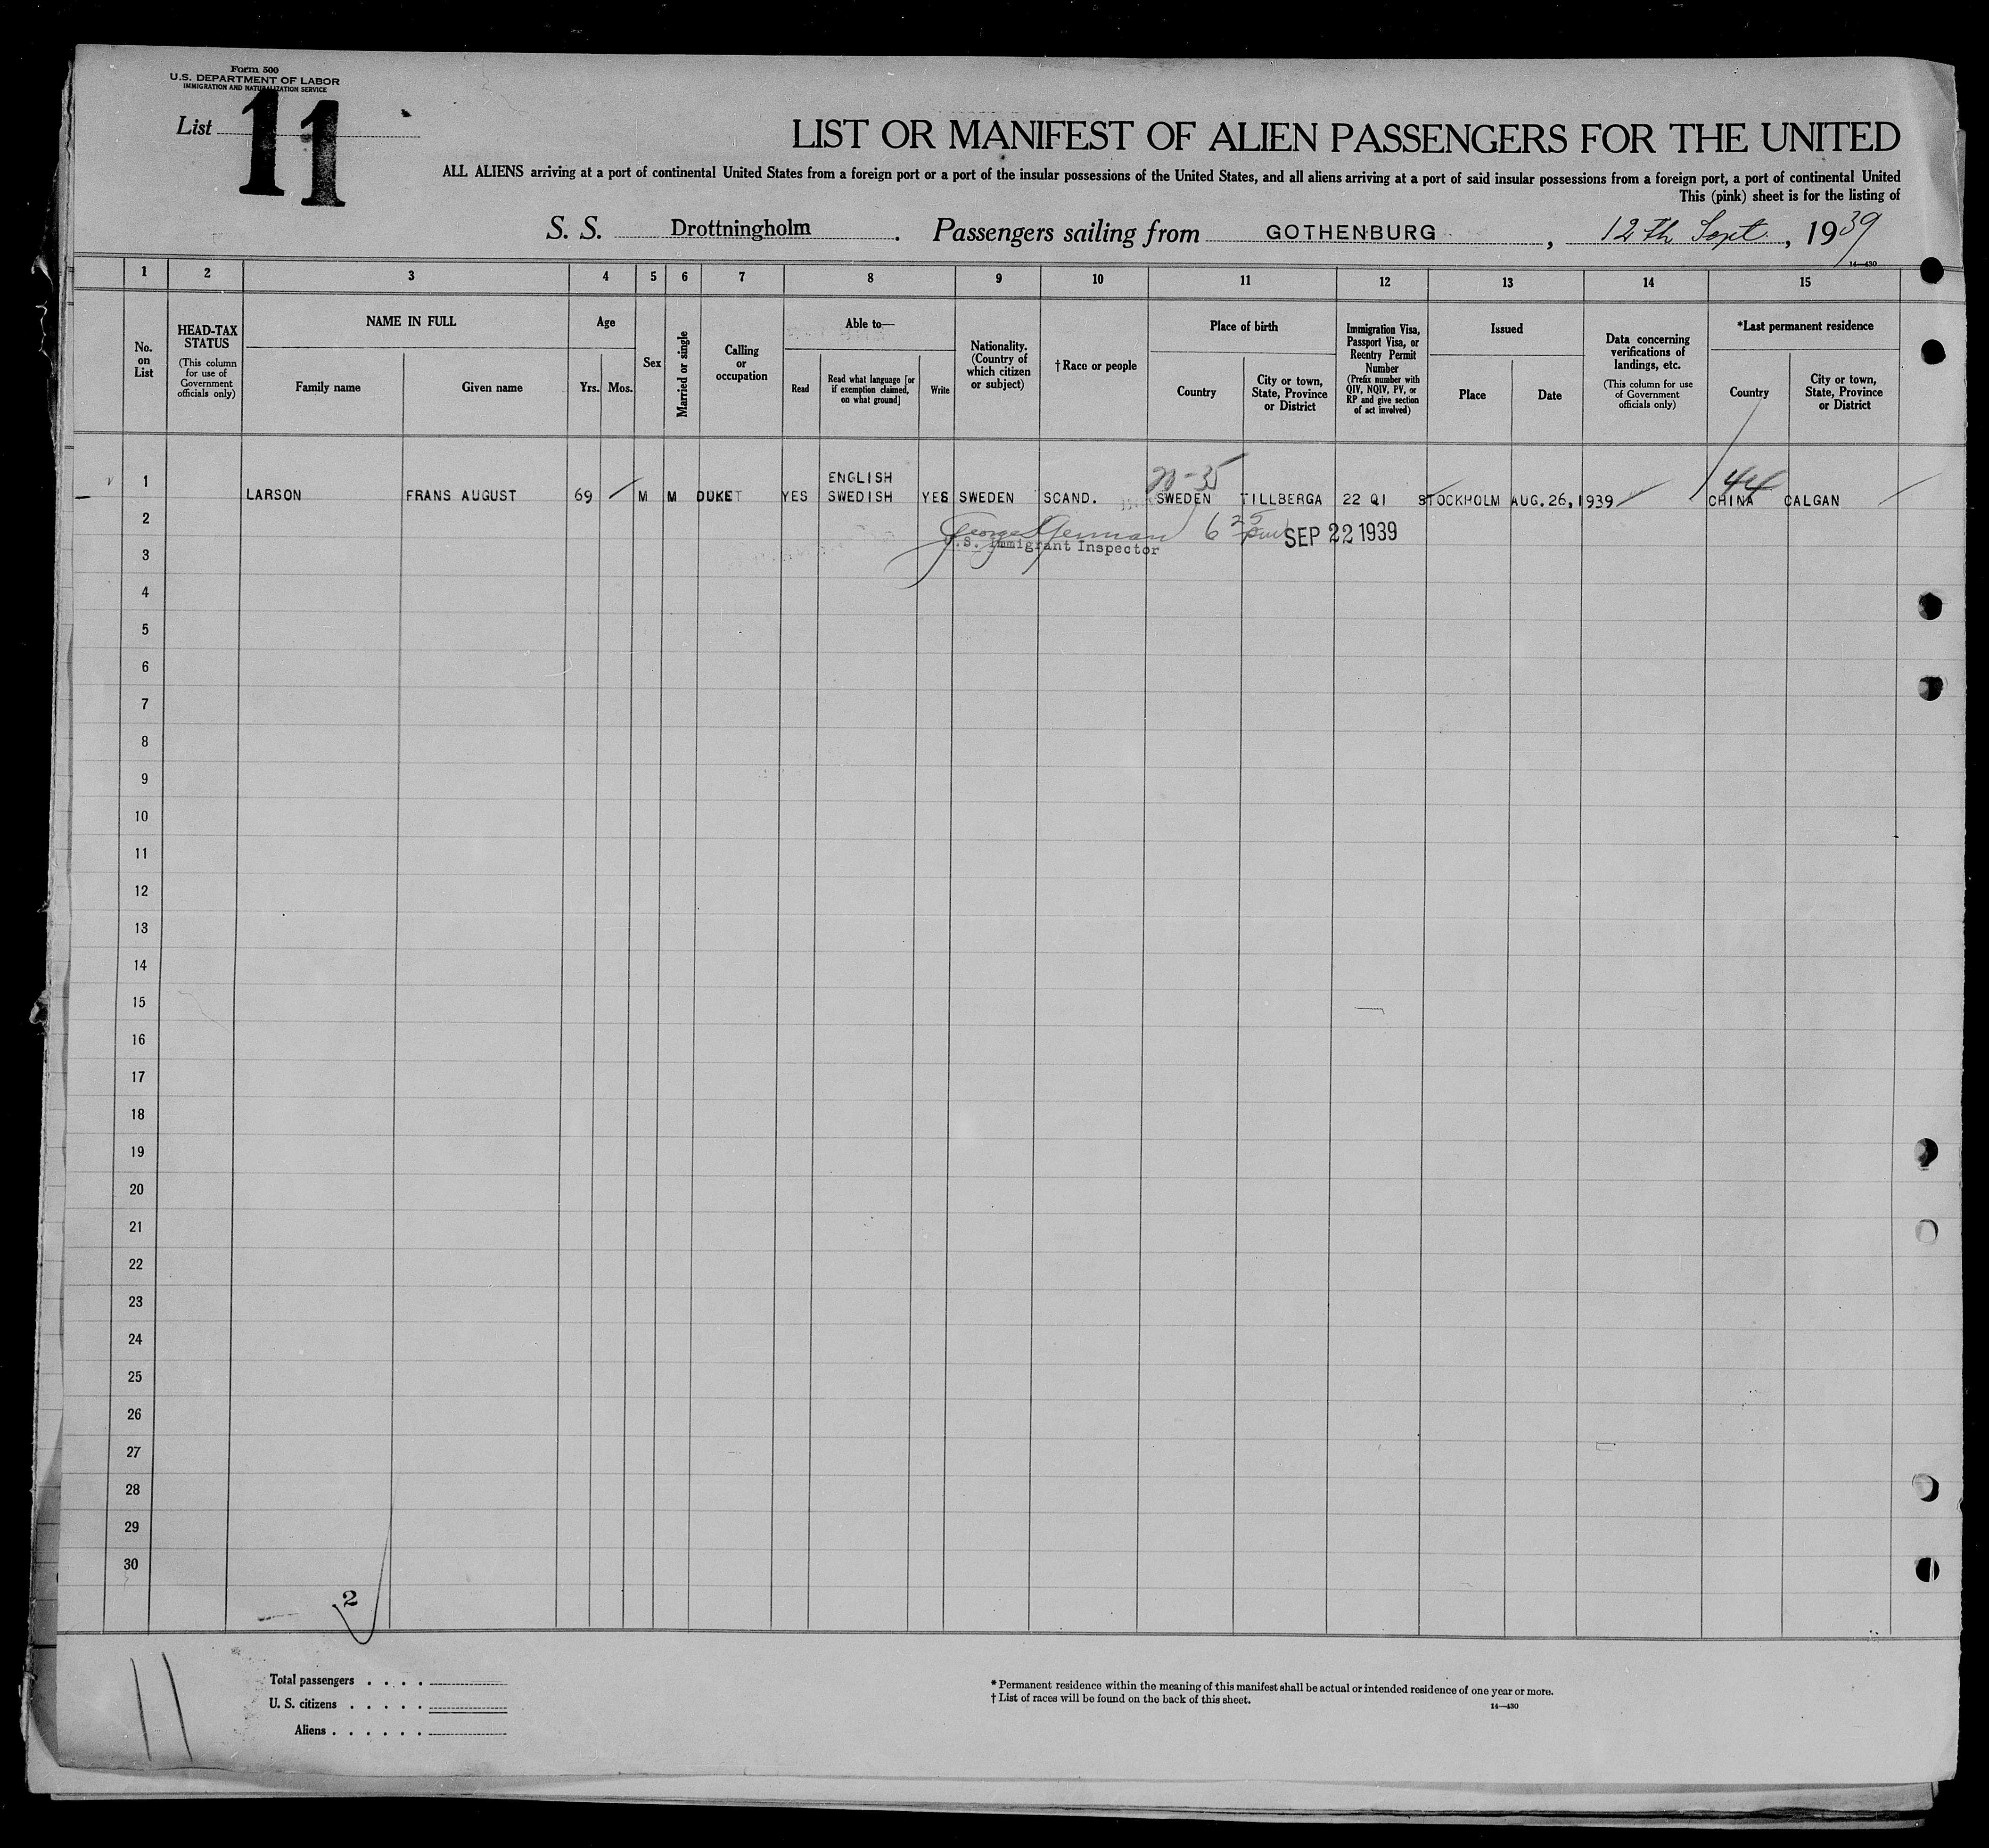 Form 500
U.S. DEPARTMENT OF LABOR
IMMIGRATION AND NATURALIZATION SERVICE
List 11
LIST OR MANIFEST OF ALIEN PASSENGERS FOR THE UNITED
ALL ALIENS arriving at a port of continental United States from a foreign port or a port of the insular possessions of the United States, and all aliens arriving at a port of said insular possessions from a foreign port, a port of continental United
This (pink) sheet is for the listing of
S. S. Drottningholm. Passengers sailing from GOTHENBURG, 12th Sept, 1939
14—430
1 2 3 4 5 6 7 8 9 10 11 12 13 14 15
No. on List
HEAD-TAX STATUS
(This column for use of Government officials only)
NAME IN FULL
Family name
Given name
Age
Yrs. Mos.
Sex
Married or single
Calling or occupation
Able to—
Read
Read what language [or if exemption claimed, on what ground]
Write
Nationality. (Country of which citizen or subject)
†Race or people
Place of birth
Country
City or town, State, Province or District
Immigration Visa, Passport Visa, or Reentry Permit Number
(Prefix number with QIV, NQIV, PV, or RP and give section of act involved)
Issued
Place
Date
Data concerning verifications of landings, etc.
(This column for use of Government officials only)
*Last permanent residence
Country
City or town, State, Province or District
ENGLISH
44
1 LARSON FRANS AUGUST 69 M M DUKET YES SWEDISH YES SWEDEN SCAND. SWEDEN TILLBERGA 22 QI STOCKHOLM AUG.26,1939 CHINA CALGAN
2
SEP 22 1939
U.S. Immigrant Inspector
3
4
5
6
7
8
9
10
11
12
13
14
15
16
17
18
19
20
21
22
23
24
25
26
27
28
29
30
2
11
Total passengers . . . .
U. S. citizens . . . . .
Aliens . . . . . .
* Permanent residence within the meaning of this manifest shall be actual or intended residence of one year or more.
† List of races will be found on the back of this sheet.
14—430